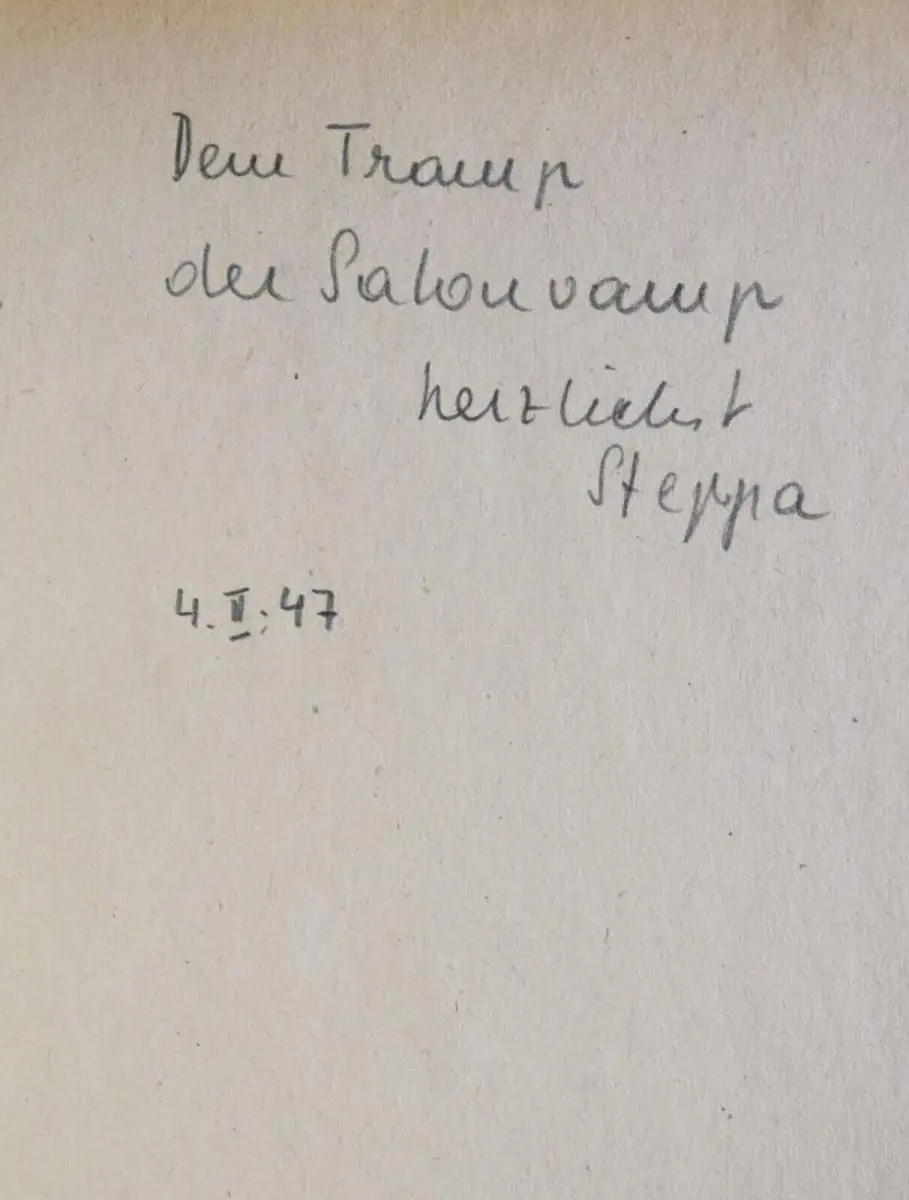 Dem Tramp
der Salonvamp
herzlichst
Steppa
4.II.47